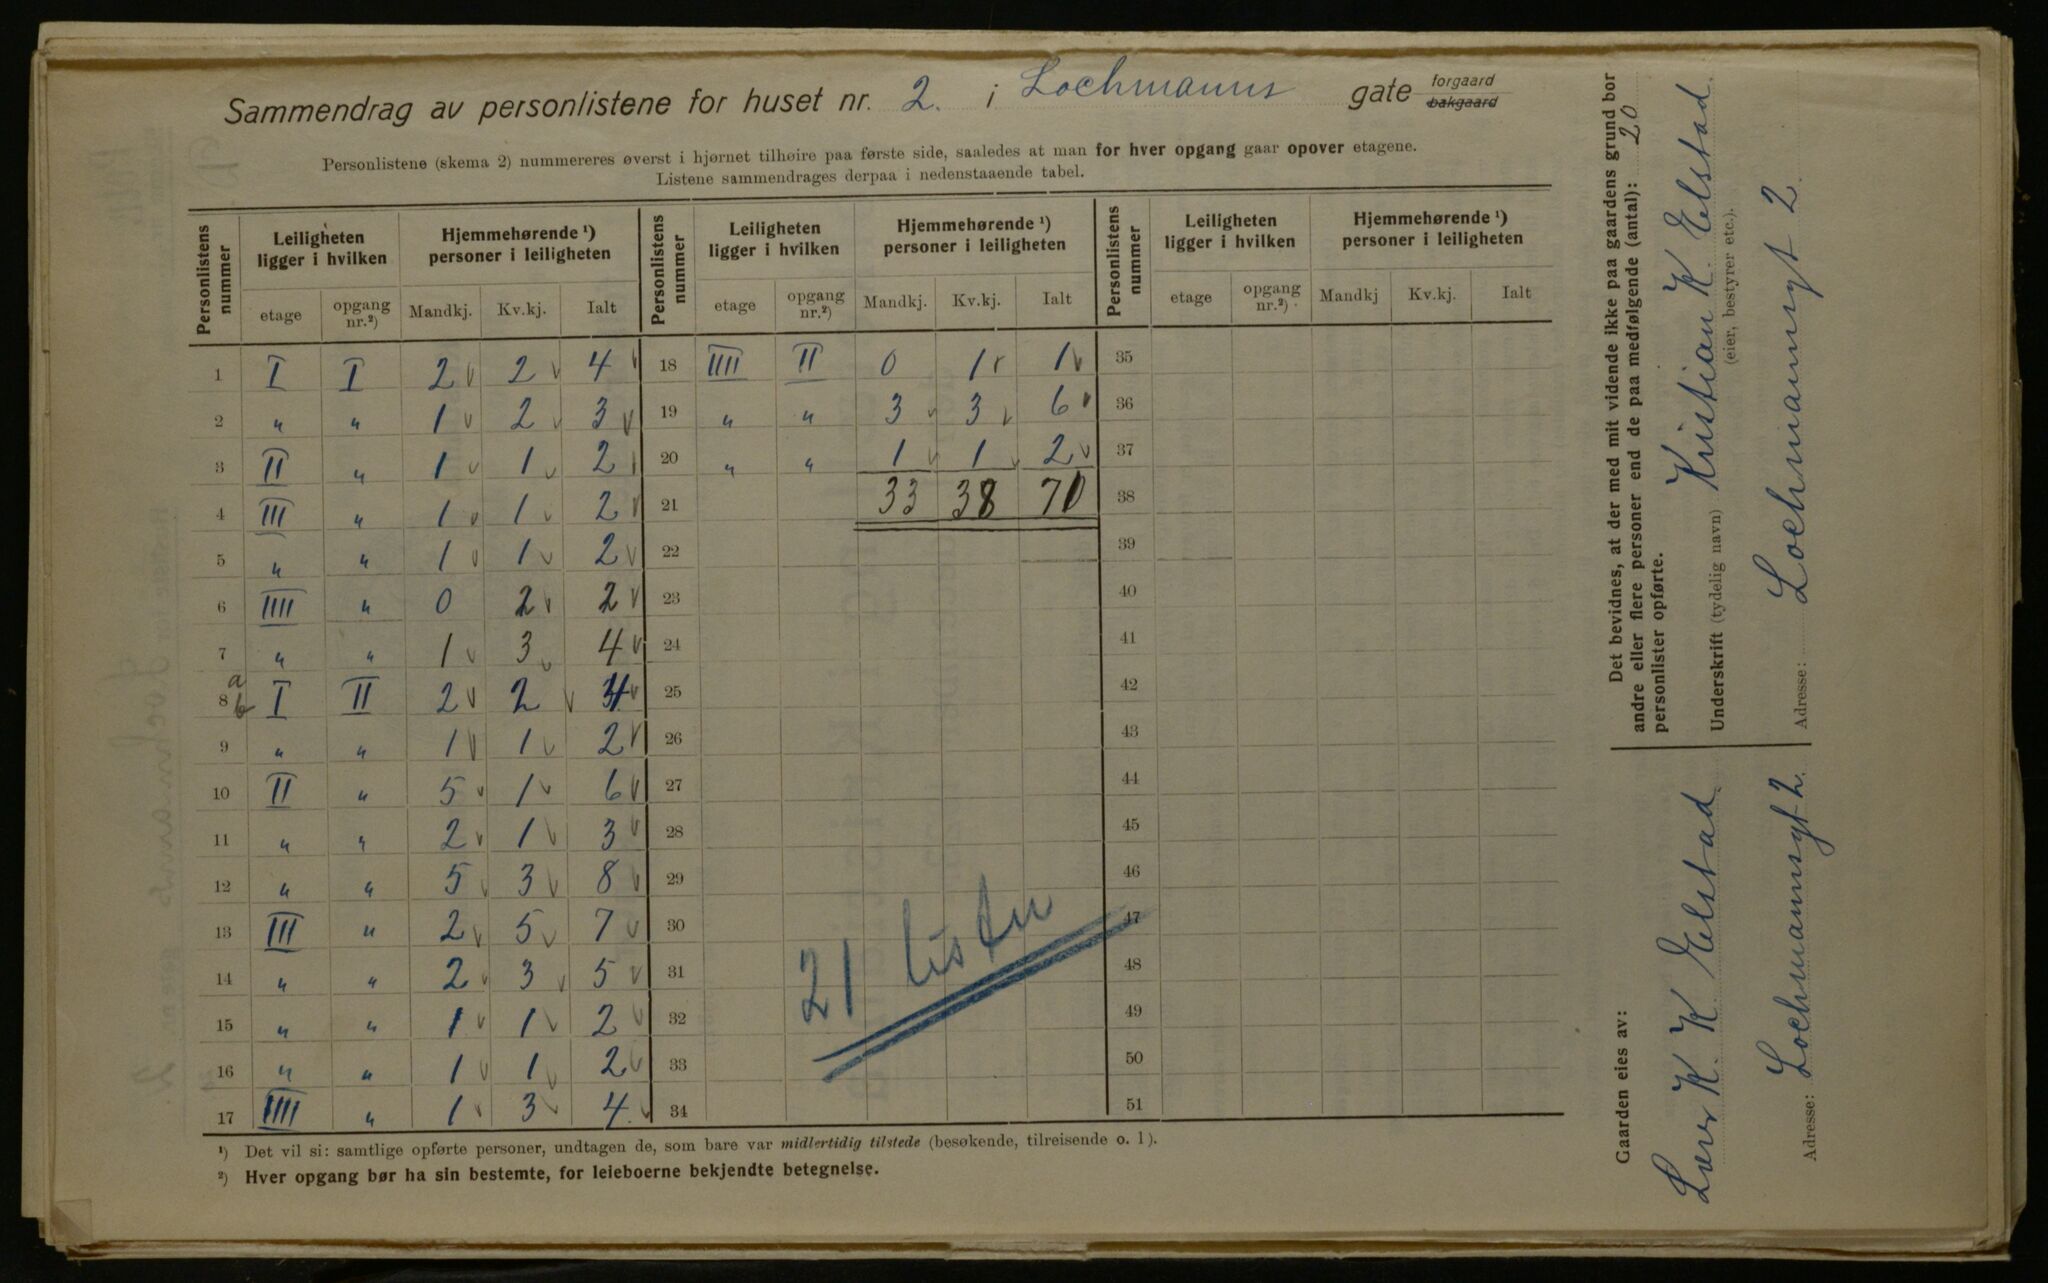 Sammendrag av personlistene for huset nr. 2. i Lochmanns gate forgaard bakgaard
Personlistene (skema 2) nummereres øverst i hjørnet tilhøire paa første side, saaledes at man for hver opgang gaar opover etagene.
Listene sammendrages derpaa i nedenstaaende tabel.
Personlistens nummer | Leiligheten ligger i hvilken | Hjemmehørende ¹) personer i leiligheten | Personlistens nummer | Leiligheten ligger i hvilken | Hjemmehørende ¹) personer i leiligheten | Personlistens nummer | Leiligheten ligger i hvilken | Hjemmehørende ¹) personer i leiligheten
etage | opgang nr.²) | Mandkj. | Kv.kj. | Ialt | etage | opgang nr.²) | Mandkj. | Kv.kj. | Ialt | etage | opgang nr.²) | Mandkj | Kv.kj. | Ialt
1 I I 2 2 4 18 IIII II 0 1 1 35
2 " " 1 2 3 19 " " 3 3 6 36
3 II " 1 1 2 20 " " 1 1 2 37
4 III " 1 1 2 21 33 38 71 38
5 " " 1 1 2 22 39
6 IIII " 0 2 2 23 40
7 " " 1 3 4 24 41
8 a b I II 2 2 4 25 42
9 " " 1 1 2 26 43
10 II " 5 1 6 27 44
11 " " 2 1 3 28 45
12 " " 5 3 8 29 46
13 III " 2 5 7 30 47
14 " " 2 3 5 31 48
15 " " 1 1 2 32 49
16 " " 1 1 2 33 50
17 IIII " 1 3 4 34 51
21 lister
¹) Det vil si: samtlige opførte personer, undtagen de, som bare var midlertidig tilstede (besøkende, tilreisende o. l).
²) Hver opgang bør ha sin bestemte, for leieboerne bekjendte betegnelse.
Det bevidnes, at der med mit vidende ikke paa gaardens grund bor
andre eller flere personer end de paa medfølgende (antal): 20
personlister opførte.
Underskrift (tydelig navn) Kristian K. Elstad.
(eier, bestyrer etc.).
Adresse: Lochmannsgt 2.
Gaarden eies av:
K. K Elstad
Adresse: Lochmannsgt 2.